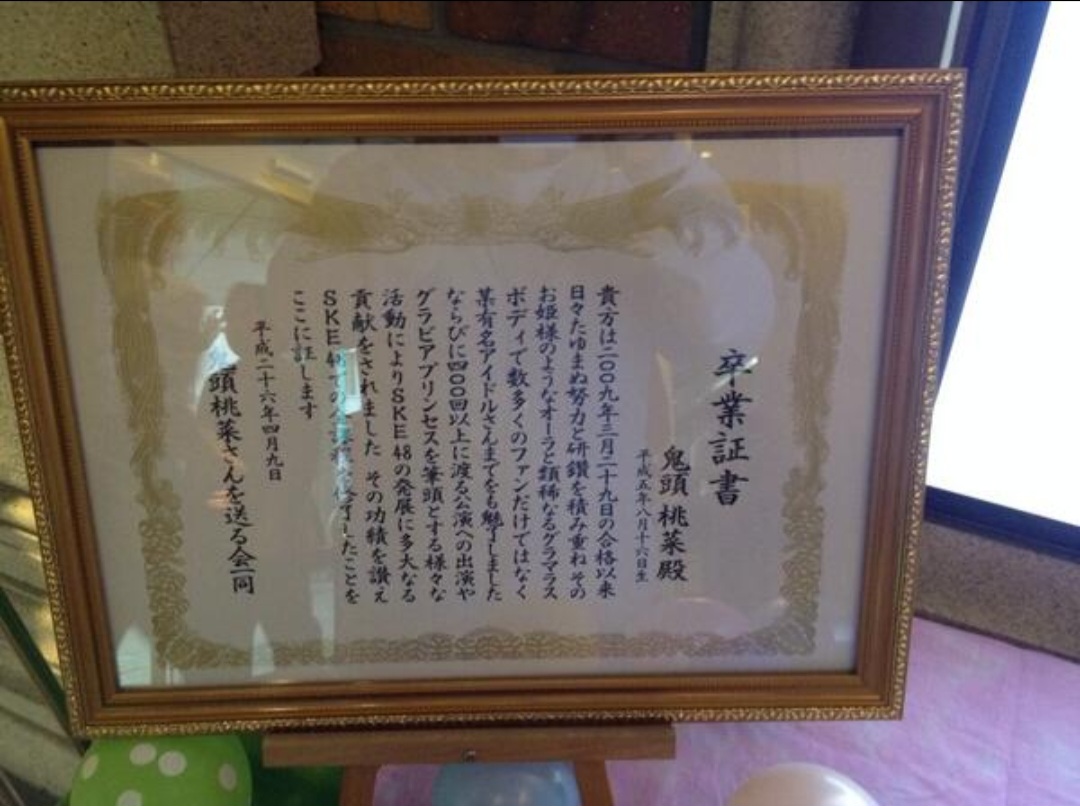 卒業証書
鬼頭桃菜殿
平成五年八月十六日生
貴方は二〇〇九年三月二十九日の合格以来
日々たゆまぬ努力と研鑽を積み重ねその
お姫様のようなオーラと類稀なるグラマラス
ボディで数多くのファンだけではなく
某有名アイドルさんまでをも魅了しました
ならびに四〇〇回以上に渡る公演への出演や
グラビアプリンセスを筆頭とする様々な
活動によりSKE48の発展に多大なる
貢献をされました その功績を讃え
SKE48での全課程を修了したことを
ここに証します
平成二十六年四月九日
鬼頭桃菜さんを送る会一同